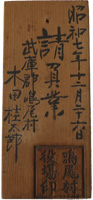 昭和七年十二月二十一日
請負業
武庫郡鳴尾村
木田桂太郎
鳴尾村
役場印